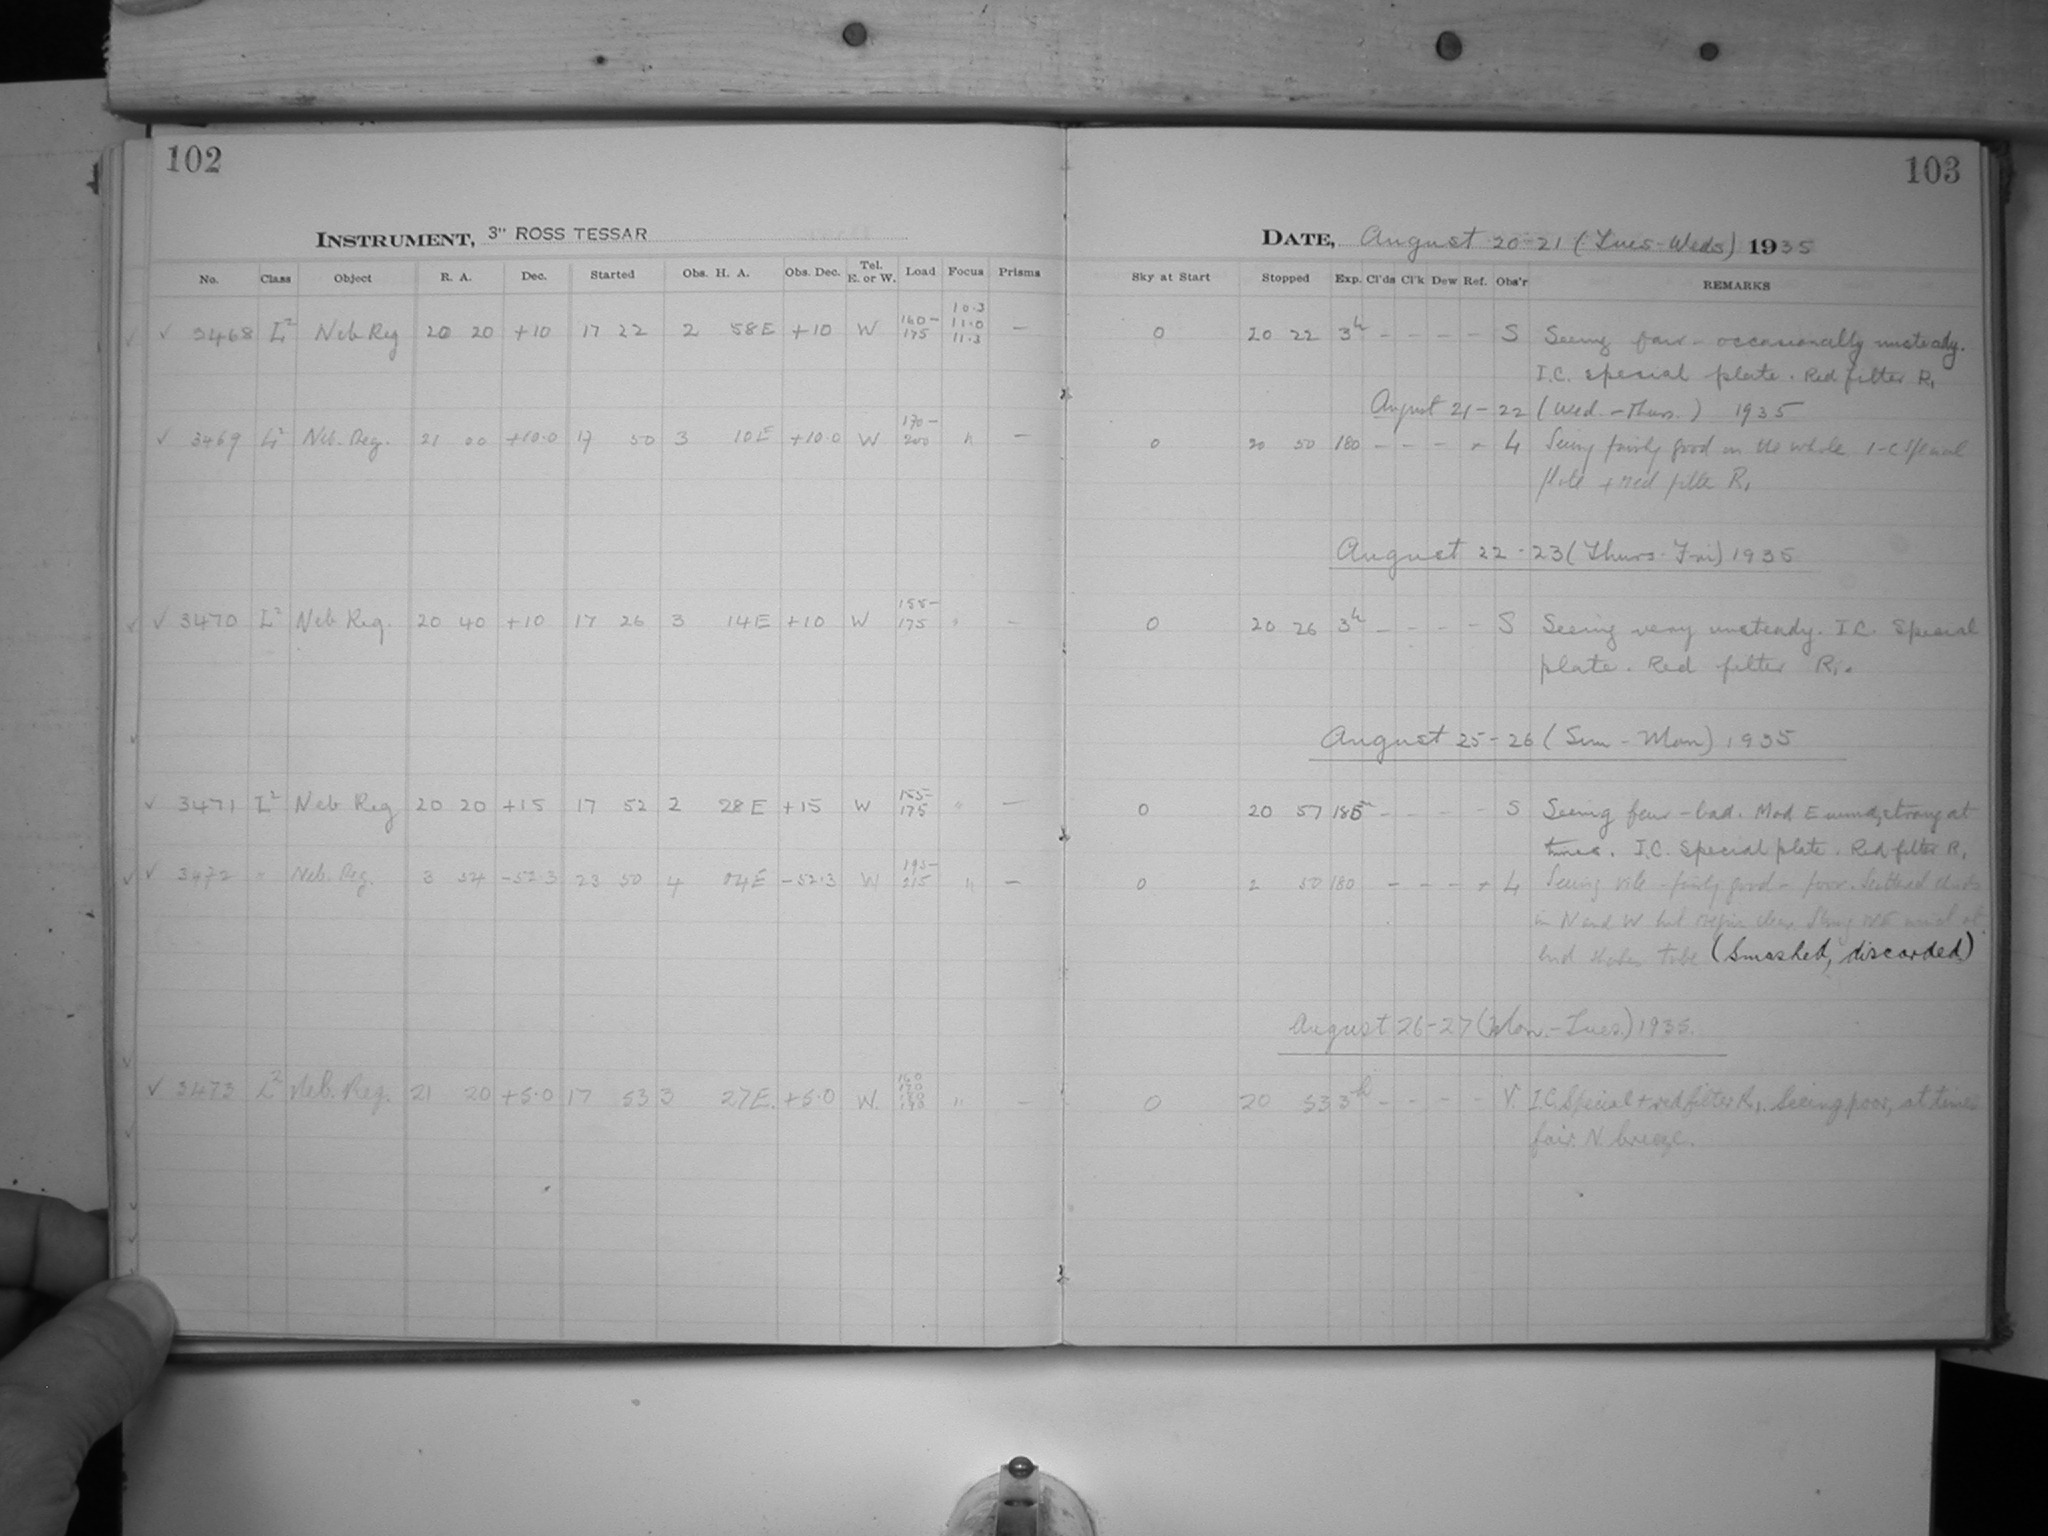 102
INSTRUMENT, 3" ROSS TESSAR
No. Class Object R. A. Dec. Started Obs. H. A. Obs. Dec. Tel. E. or W. Load Focus Prisms
✓ 3468 L² Neb Reg 20 20 +10 17 22 2 58E +10 W 160-175 10.3 11.0 11.3 —
✓ 3469 L² Neb. Reg. 21 00 +10.0 17 50 3 10E +10.0 W 170-200 " —
✓ 3470 L² Neb Reg. 20 40 +10 17 26 3 14E +10 W 155-175 " —
✓ 3471 L² Neb Reg 20 20 +15 17 52 2 28E +15 W 155-175 " —
✓ 3472 " Neb. Reg. 3 54 -52.3 23 50 4 04E -52.3 W 195-215 " —
✓ 3473 L² Neb. Reg. 21 20 +5.0 17 53 3 27E. +5.0 W. " —
103
DATE, August 20-21 (Tues-Weds) 1935
Sky at Start Stopped Exp. Cl'ds Cl'k Dew Ref. Obs'r REMARKS
0 20 22 3h - - - - S Seeing fair - occasionally unsteady.
I.C. special plate. Red filter R₁
August 21-22 (Wed.-Thurs.) 1935
0 20 50 180 - - - - L Seeing fairly good on the whole I-C special
plate + red filter R₁
August 22-23 (Thurs-Fri) 1935
0 20 26 3h - - - - S Seeing very unsteady. I.C. Special
plate. Red filter R₁.
August 25-26 (Sun-Mon) 1935
0 20 57 185m - - - - S Seeing fair-bad. Mod E wind, strong at
times. I.C. special plate. Red filter R₁
0 2 50 180 - - - - L Seeing vile - fairly good - poor. Scattered clouds
in N and W but region clear Strong wind at
end shakes tube (Smashed, discarded)
August 26-27 (Mon.-Tues.) 1935.
0 20 53 3h - - - - V. I.C. Special + red filter R₁. Seeing poor, at times
fair. N breeze.